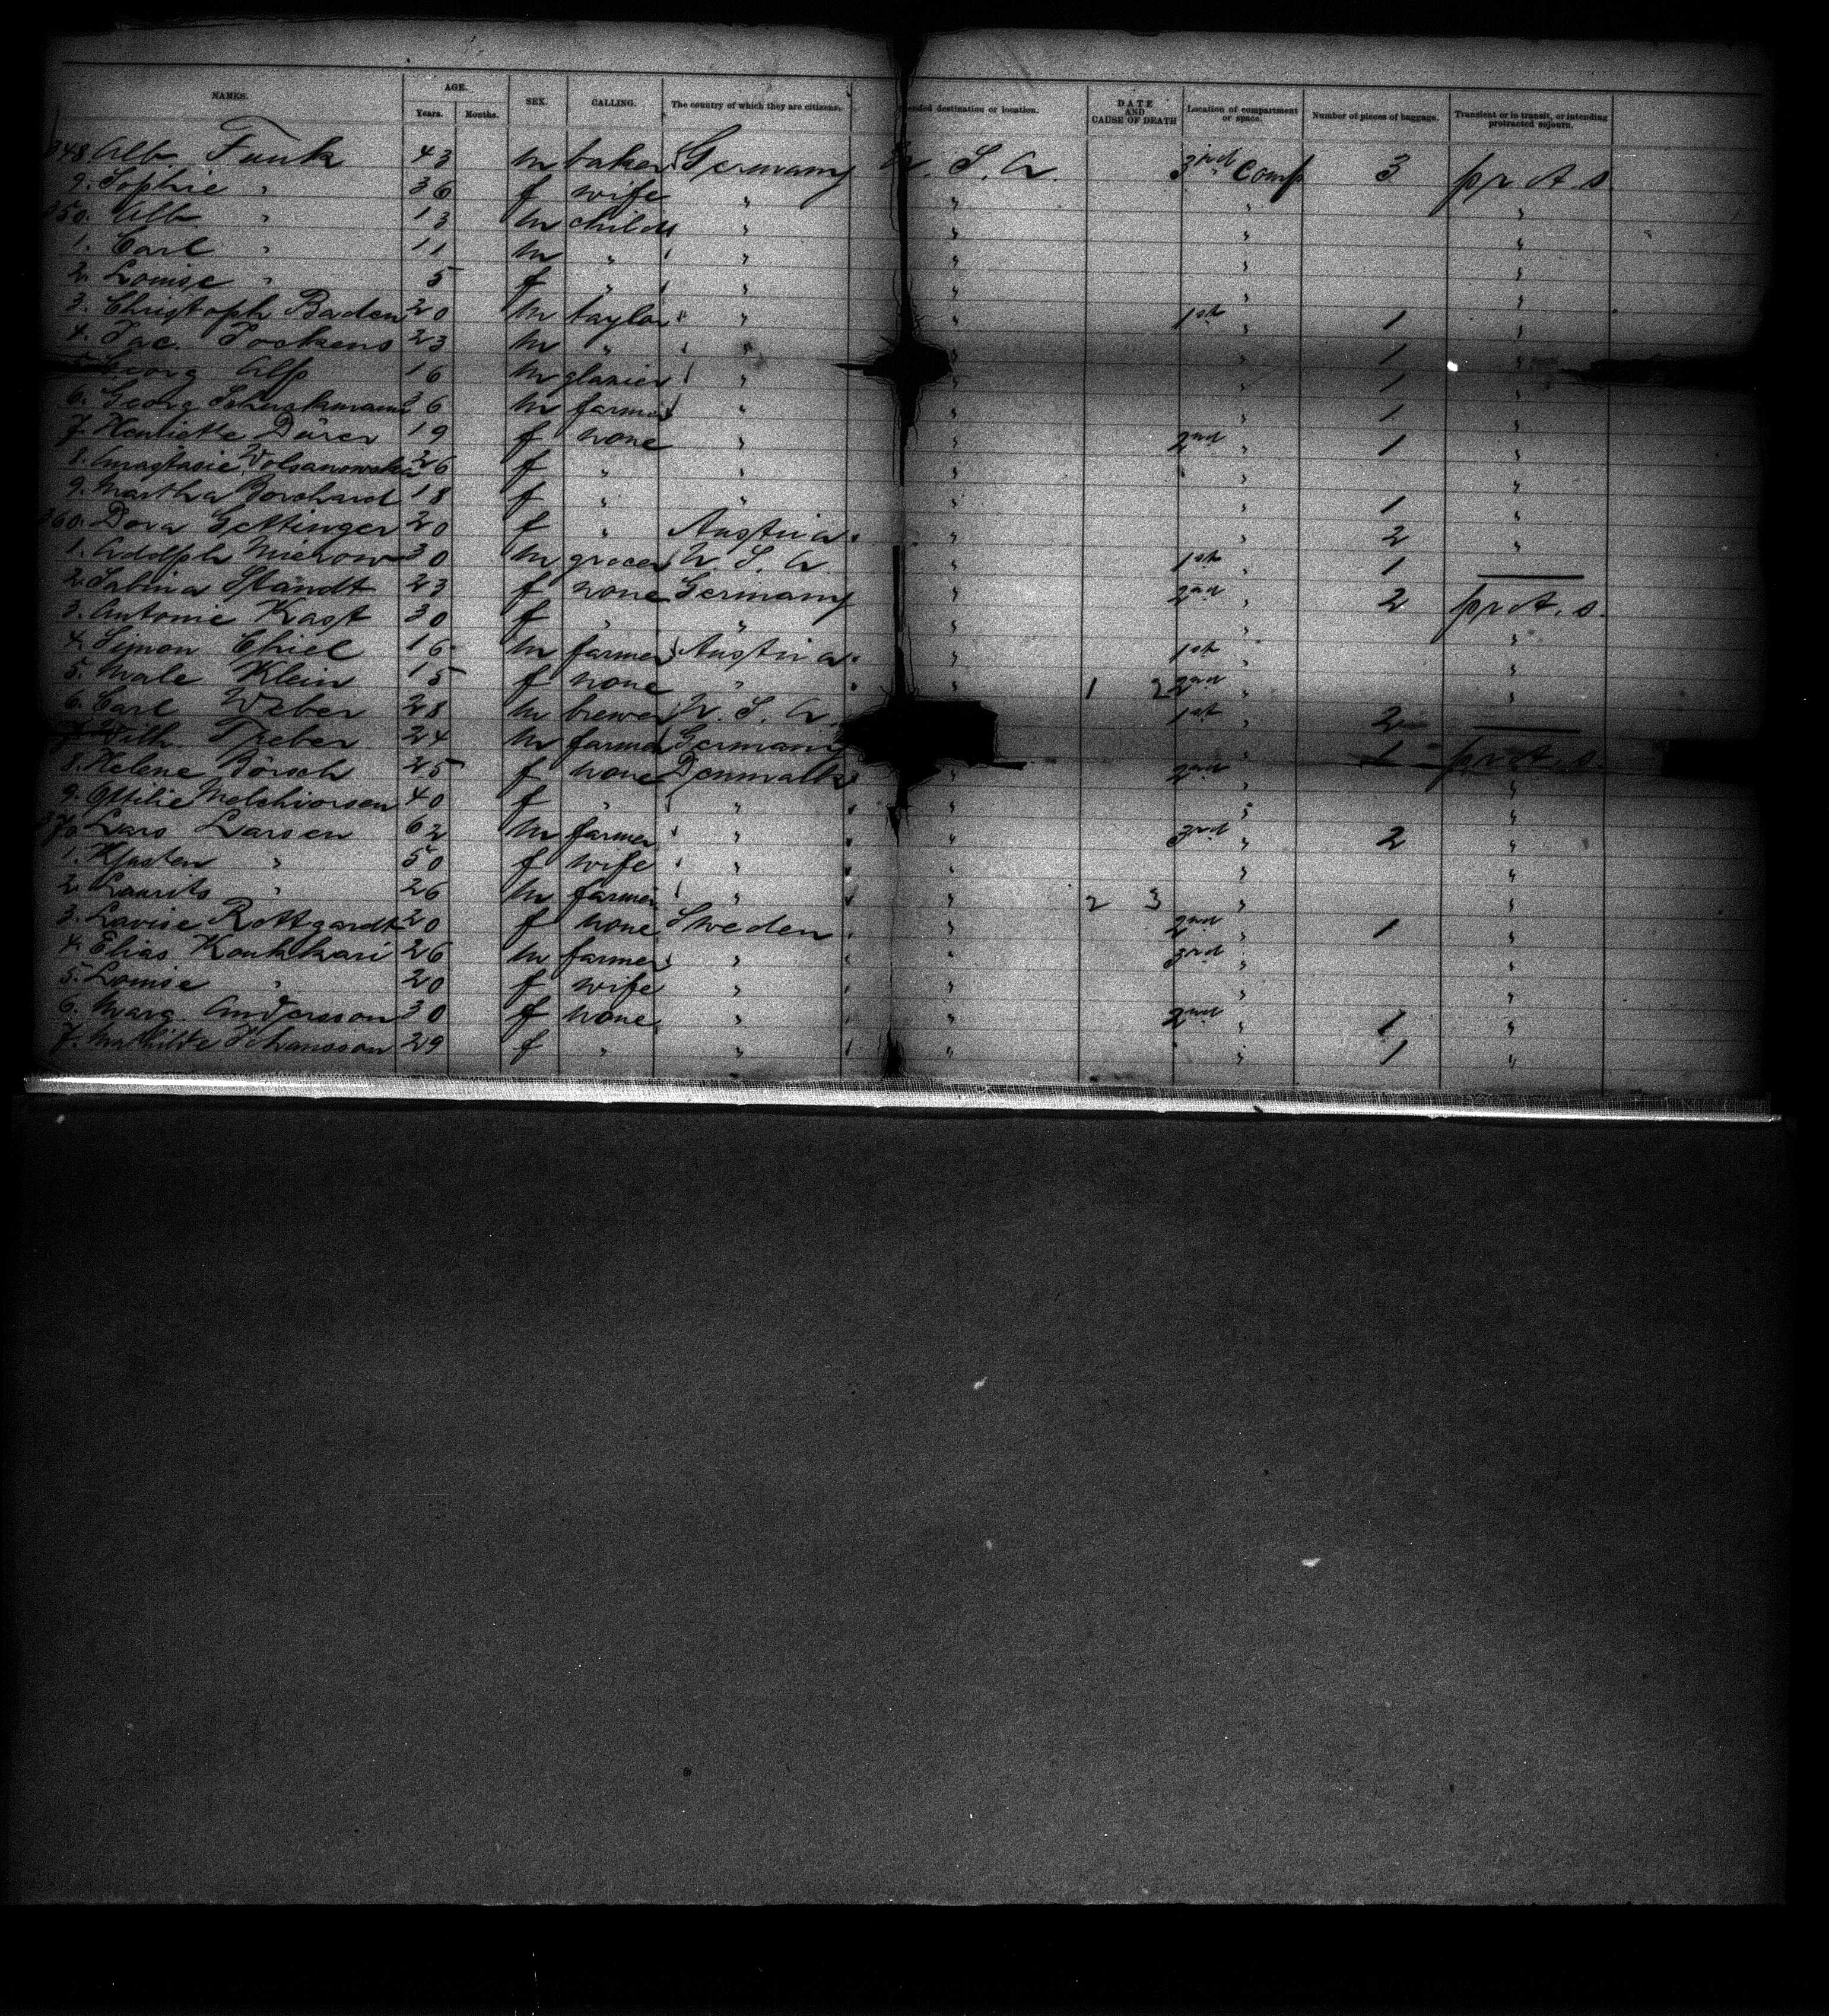 NAMES. AGE. Years. Months. SEX. CALLING. The country of which they are citizens. ended destination or location. DATE AND CAUSE OF DEATH Location of compartment or space. Number of pieces of baggage. Transient or in transit, or intending protracted sojourn.
348. Alb Funk 43 m baker Germany U. S. A. 3rd Comp 3 pr A. s.
9. Sophie " 36 f wife " " " "
350. Alb " 13 m child " " " "
1. Carl " 11 m " " " " "
2. Louise " 5 f " " " " "
3. Christoph Baden 20 m taylor " " 1st " 1 "
4. Jac. Tockens 23 m " " " " 1 "
5. Georg Alp 16 m glazier " " " 1 "
6. Georg 36 m farmer " " " 1 "
7. Henriette Dürer 19 f none " " 2nd " 1 "
8. Anastasie Wolsanowska 26 f " " " " "
9. Martha Borchard 18 f " " " " 1 "
360. Dora Gettinger 20 f " Austria " " 2 "
1. Adolph Mierow 30 m grocer U. S. A. " 1st " 1 —
2. Sabina Standt 23 f none Germany " 2nd " 2 pr A. s.
3. Antonie Kast 30 f " " " " "
4. Simon Chiel 16 m farmer Austria " 1st " "
5. Male Klein 15 f none " " 1 2 2nd " "
6. Carl Weber 28 m brewer U. S. A. 1st " 2 —
7. Wilh. Treber 24 m farmer Germany " 1 pr A. s.
8. Helene Börsch 25 f none Denmark " 2nd " "
9. Ottilie Melchiorsen 40 f " " " " "
370. Lars Larsen 62 m farmer " " 3rd " 2 "
1. Kjasten " 50 f wife " " " "
2. Laurits " 26 m farmer " " 2 3 " "
3. Lavise Rottgardt 20 f none Sweden " 2nd " 1 "
4. Elias Koukkari 26 m farmer " " 3rd " "
5. Louise " 20 f wife " " " "
6. Marg. Andersson 30 f none " " 2nd " 1 "
7. Mathilde Johansson 29 f " " " " 1 "